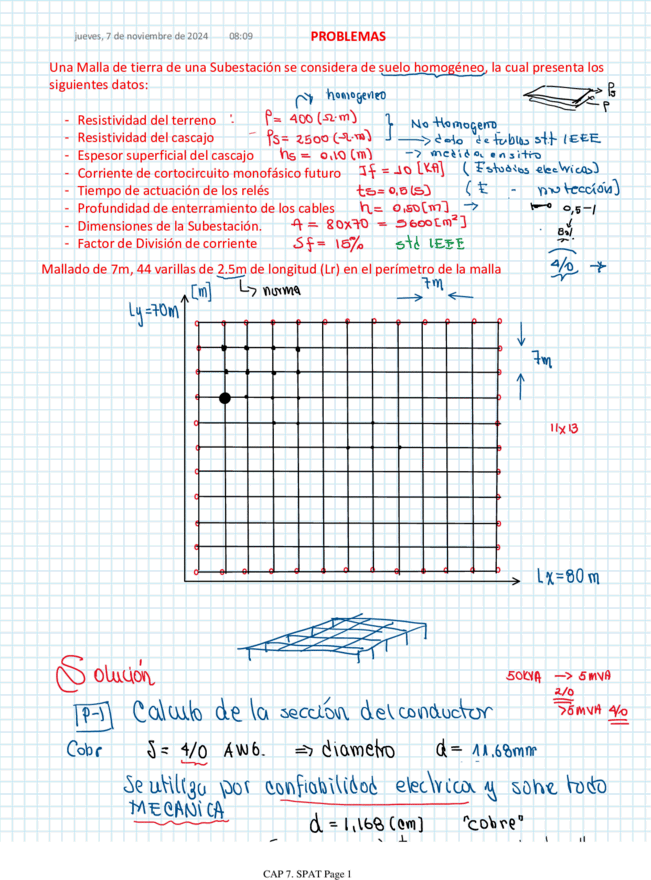 jueves, 7 de noviembre de 2024 08:09 PROBLEMAS
Una Malla de tierra de una Subestación se considera de suelo homogéneo, la cual presenta los
siguientes datos:
homogeneo
- Resistividad del terreno : ρ = 400 (Ω·m)
- Resistividad del cascajo ρs = 2500 (Ω·m)
- Espesor superficial del cascajo hs = 0,10 (m)
- Corriente de cortocircuito monofásico futuro If = 10 [KA] (Estudios electricos)
- Tiempo de actuación de los relés ts = 0,5 (s)
- Profundidad de enterramiento de los cables h = 0,50 [m] →
- Dimensiones de la Subestación. A = 80x70 = 5600 [m²]
- Factor de División de corriente Sf = 15% std IEEE
No Homogeno
→ dato de tablas std IEEE
→ medida onsitro
ρs
ρ
0,5-1
4/0
Mallado de 7m, 44 varillas de 2.5m de longitud (Lr) en el perímetro de la malla
norma
[m]
Ly=70m
7m
7m
11x13
Lx=80m
Solución
50KVA → 5MVA
2/0
>5MVA 4/0
P-1 Calculo de la sección del conductor
Cobr S = 4/0 AWG. ⇒ diametro d = 11.68mm
Se utiliza por confiabilidad electrica y sobre todo
MECANICA
d = 1,168 (cm) "cobre"
CAP 7. SPAT Page 1